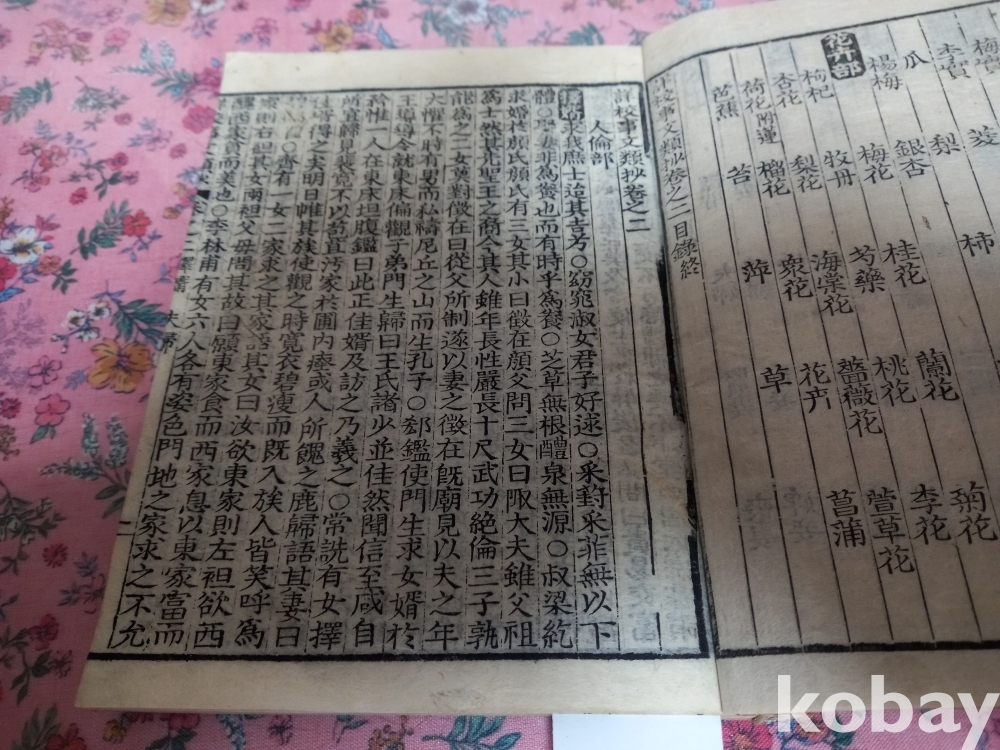 梅實 菱 柿 菊花
李實 梨 蘭花 李花
瓜 銀杏 桂花 桃花 萱草花
楊梅 梅花 芍藥 薔薇花 菖蒲
花卉部 牧丹 海棠花 花卉
梨花 衆花 草
杏花 榴花 萍
荷花附蓮 苔
芭蕉
事文類抄卷之二目錄終
校事文類抄卷之二
人倫部
求我庶士迨其吉兮○窈窕淑女君子好逑○采葑采菲無以下
體○娶妻非爲養也而有時乎爲養○芝草無根醴泉無源○叔梁紇
求婚於顔氏顔氏有三女其小曰徵在顔父問三女曰陬大夫雖父祖
爲士然其先聖王之裔今其人雖年長性嚴長十尺武功絶倫三子孰
能爲之二女莫對徵在曰從父所制遂以妻之徵在旣廟見以夫之年
大懼不時有男而私禱尼丘之山而生孔子○郄鑑使門生求女婿於
王導導令就東床徧觀子弟門生歸曰王氏諸少並佳然聞信至咸自
矜惟一人在東床坦腹鑑曰此正佳婿及訪之乃羲之○常詵有女擇
所宜歸見裴寬不以苞苴汚家於圃內瘞或人所餽之鹿歸語其妻曰
婿得之矣明日帷其族使觀之時寬衣碧瘦而旣入族人皆笑呼爲
○齊有一女二家求之其家語其女曰汝欲東家則左袒欲西
家則右袒其女兩袒父母問其故曰願東家食而西家息以東家富而
醜西家貧而美也○李林甫有女六人各有姿色門地之家求之不允
kobay